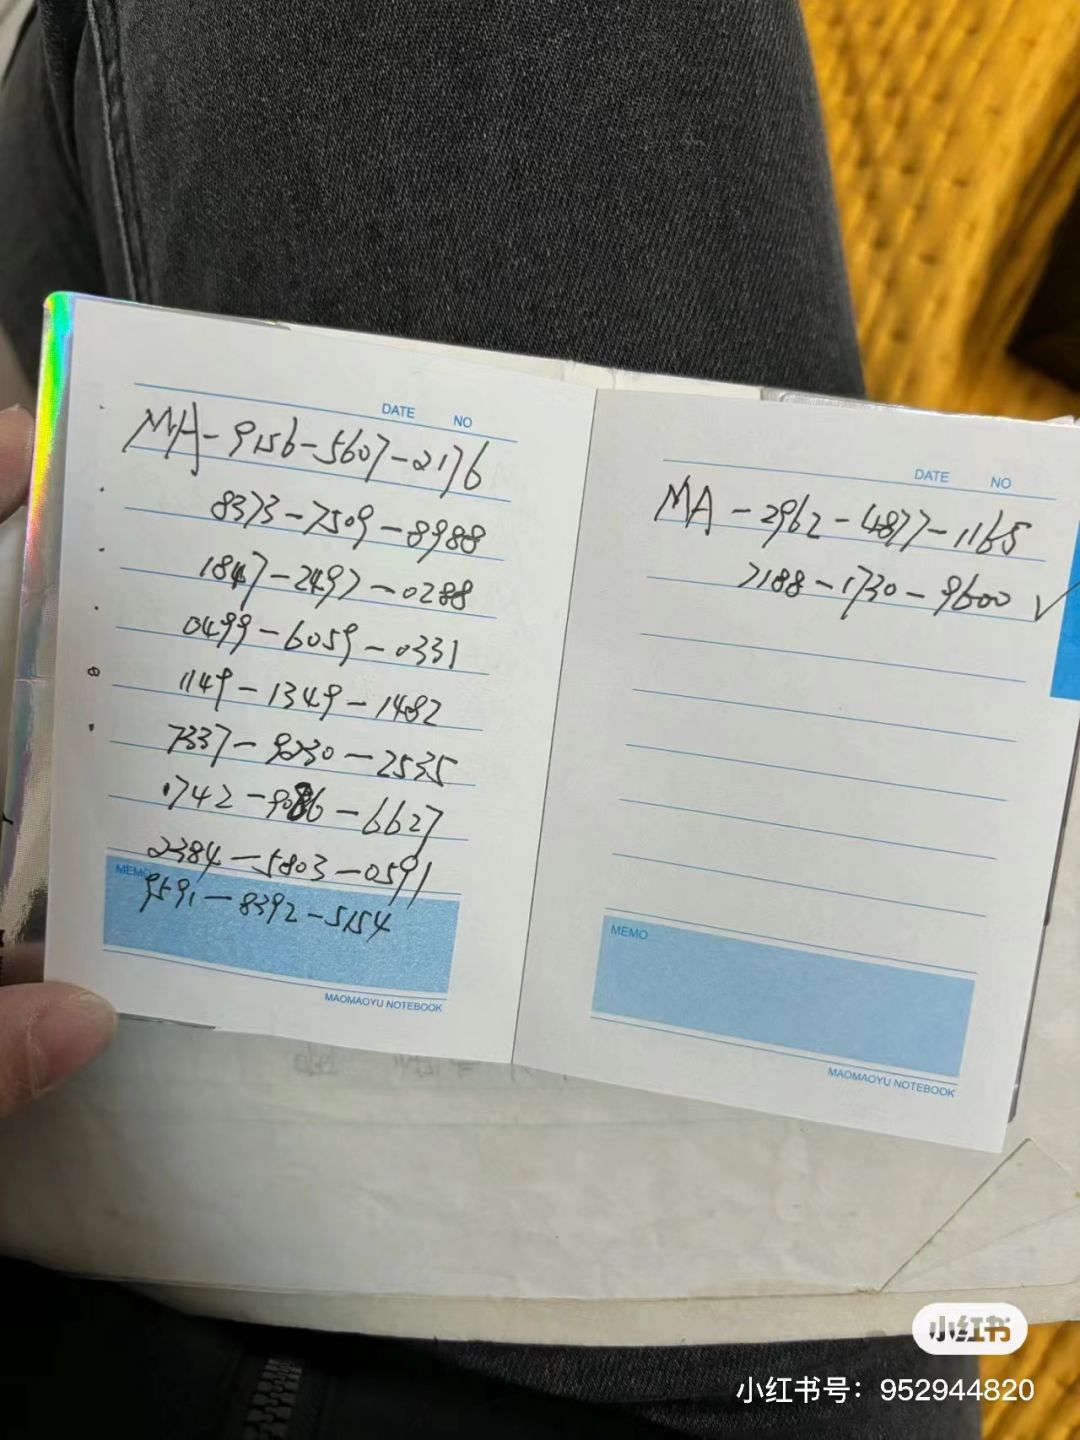 DATE NO
MA-9156-5607-2176
8373-7509-8988
1847-2497-0288
0499-6059-0331
1149-1349-1482
7337-9230-2535
1742-9086-6627
2384-5803-0591
MEMO
9591-8392-5154
MAOMAOYU NOTEBOOK
DATE NO
MA-2962-4877-1165
7188-1730-9600 √
MEMO
MAOMAOYU NOTEBOOK
小红书
小红书号：952944820